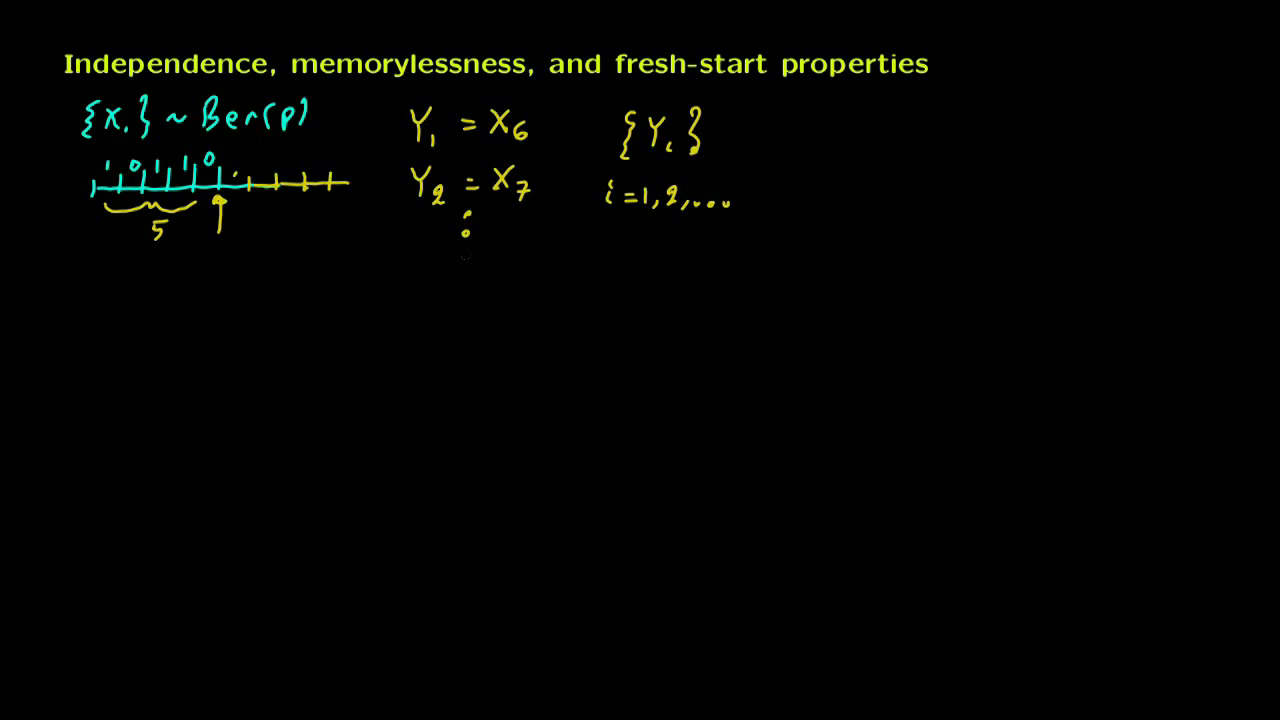 Independence, memorylessness, and fresh-start properties
{X_i} ~ Ber(p)
1 0 1 1 0
5
Y_1 = X_6
Y_2 = X_7
⋮
{Y_i}
i = 1, 2, ...